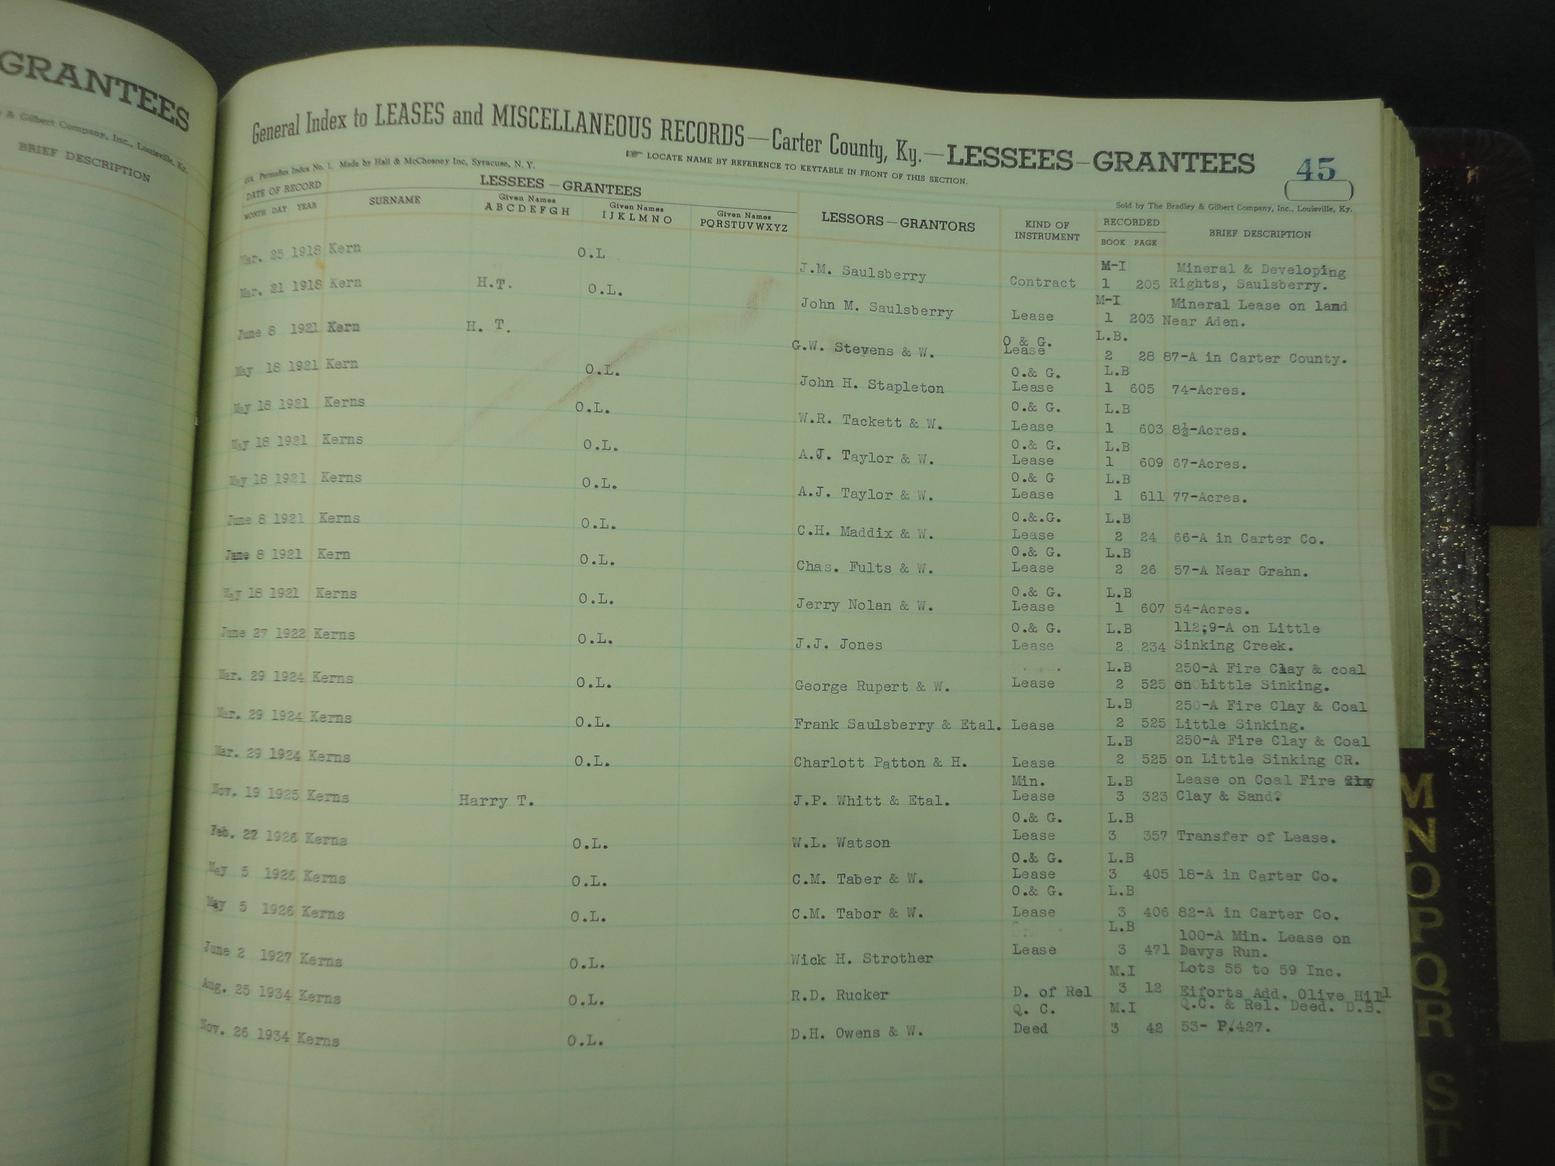 GRANTEES
& Gilbert Company, Inc., Louisville, Ky.
BRIEF DESCRIPTION
General Index to LEASES and MISCELLANEOUS RECORDS—Carter County, Ky.—LESSEES—GRANTEES
45
Permadex Index No. 1. Made by Hall & McChesney Inc, Syracuse, N. Y.
LOCATE NAME BY REFERENCE TO KEYTABLE IN FRONT OF THIS SECTION.
Sold by The Bradley & Gilbert Company, Inc., Louisville, Ky.
DATE OF RECORD
MONTH DAY YEAR
SURNAME
LESSEES—GRANTEES
Given Names ABCDEFGH
Given Names IJKLMNO
Given Names PQRSTUVWXYZ
LESSORS—GRANTORS
KIND OF INSTRUMENT
RECORDED
BOOK PAGE
BRIEF DESCRIPTION
Mar. 25 1918 Kern O.L J.M. Saulsberry Contract M-I 1 205 Mineral & Developing Rights, Saulsberry.
Mar. 21 1918 Kern H.T. O.L. John M. Saulsberry Lease M-I 1 203 Mineral Lease on land Near Aden.
June 8 1921 Kern H. T. G.W. Stevens & W. O & G. Lease L.B. 2 28 87-A in Carter County.
May 18 1921 Kern O.L. John H. Stapleton O.& G. Lease L.B 1 605 74-Acres.
May 18 1921 Kerns O.L. W.R. Tackett & W. O.& G. Lease L.B 1 603 8½-Acres.
May 18 1921 Kerns O.L. A.J. Taylor & W. O.& G. Lease L.B 1 609 67-Acres.
May 18 1921 Kerns O.L. A.J. Taylor & W. O.& G Lease L.B 1 611 77-Acres.
June 8 1921 Kerns O.L. C.H. Maddix & W. O.&.G. Lease L.B 2 24 66-A in Carter Co.
June 8 1921 Kern O.L. Chas. Fults & W. O.& G. Lease L.B 2 26 57-A Near Grahn.
May 18 1921 Kerns O.L. Jerry Nolan & W. O.& G. Lease L.B 1 607 54-Acres.
June 27 1922 Kerns O.L. J.J. Jones O.& G. Lease L.B 2 234 112;9-A on Little Sinking Creek.
Mar. 29 1924 Kerns O.L. George Rupert & W. Lease L.B 2 525 250-A Fire Clay & coal on Little Sinking.
Mar. 29 1924 Kerns O.L. Frank Saulsberry & Etal. Lease L.B 2 525 250-A Fire Clay & Coal Little Sinking.
Mar. 29 1924 Kerns O.L. Charlott Patton & H. Lease L.B 2 525 250-A Fire Clay & Coal on Little Sinking CR.
Nov. 19 1925 Kerns Harry T. J.P. Whitt & Etal. Min. Lease L.B 3 323 Lease on Coal Fire Clay & Sand.
Feb. 22 1926 Kerns O.L. W.L. Watson O.& G. Lease L.B 3 357 Transfer of Lease.
May 5 1926 Kerns O.L. C.M. Taber & W. O.& G. Lease L.B 3 405 18-A in Carter Co.
May 5 1926 Kerns O.L. C.M. Tabor & W. O.& G. Lease L.B 3 406 82-A in Carter Co.
June 2 1927 Kerns O.L. Wick H. Strother Lease L.B 3 471 100-A Min. Lease on Davys Run.
Aug. 25 1934 Kerns O.L. R.D. Rucker D. of Rel M.I 3 12 Lots 55 to 59 Inc. Eiforts Add. Olive Hill
Nov. 26 1934 Kerns O.L. D.H. Owens & W. Q. C. Deed M.I 3 42 Q.C. & Rel. Deed. D.B. 53- P.427.
M
N
O
P
Q
R
S
T